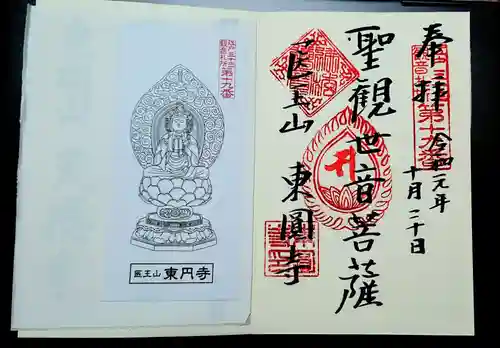 奉拝
第十九番
令和元年
十月二十日
聖観世音菩薩
医王山 東圓寺
第十九番
医王山 東円寺